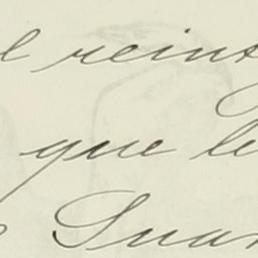 l reint
que le
Suan